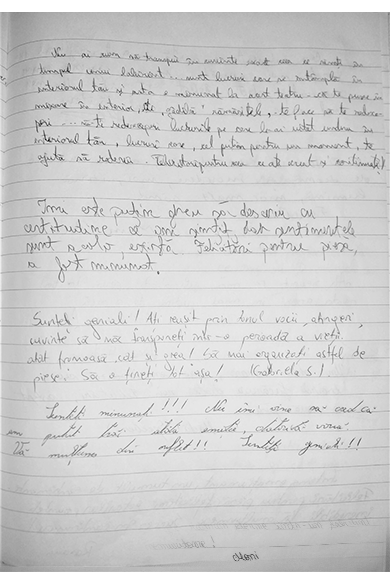 Nu ai cum să transpui în cuvinte exact ceea ce simți în
timpul labirint... sunt lucruri care se întâmplă în
interiorul tău și asta e minunat la acest teatru - că te pune în
mișcare în exterior, te simțurile, te face să te
... să te lucrurile pe care le-ai uitat undeva în
interiorul tău, lucruri care, cel puțin pentru un moment, te
ajută să. Felicitări pentru ceea ce ați creat și continuați!
Îmi este puțin greu să descriu cu
ce am simțit dar sentimentele
sunt acolo, există. Felicitări pentru piesă,
a fost minunat.
Sunteți geniali! Ați reușit prin tonul vocii, atingeri,
cuvinte să mă transpuneți într-o perioadă a vieții
atât frumoasă cât și grea! Să mai organizați astfel de
piese! Să o țineți tot așa! (Gabriela S.)
Sunteți minunați!!! Nu îmi vine să cred că
am putut trăi atâta emoție, datorită vouă.
Vă mulțumesc din suflet!! Sunteți geniali!!